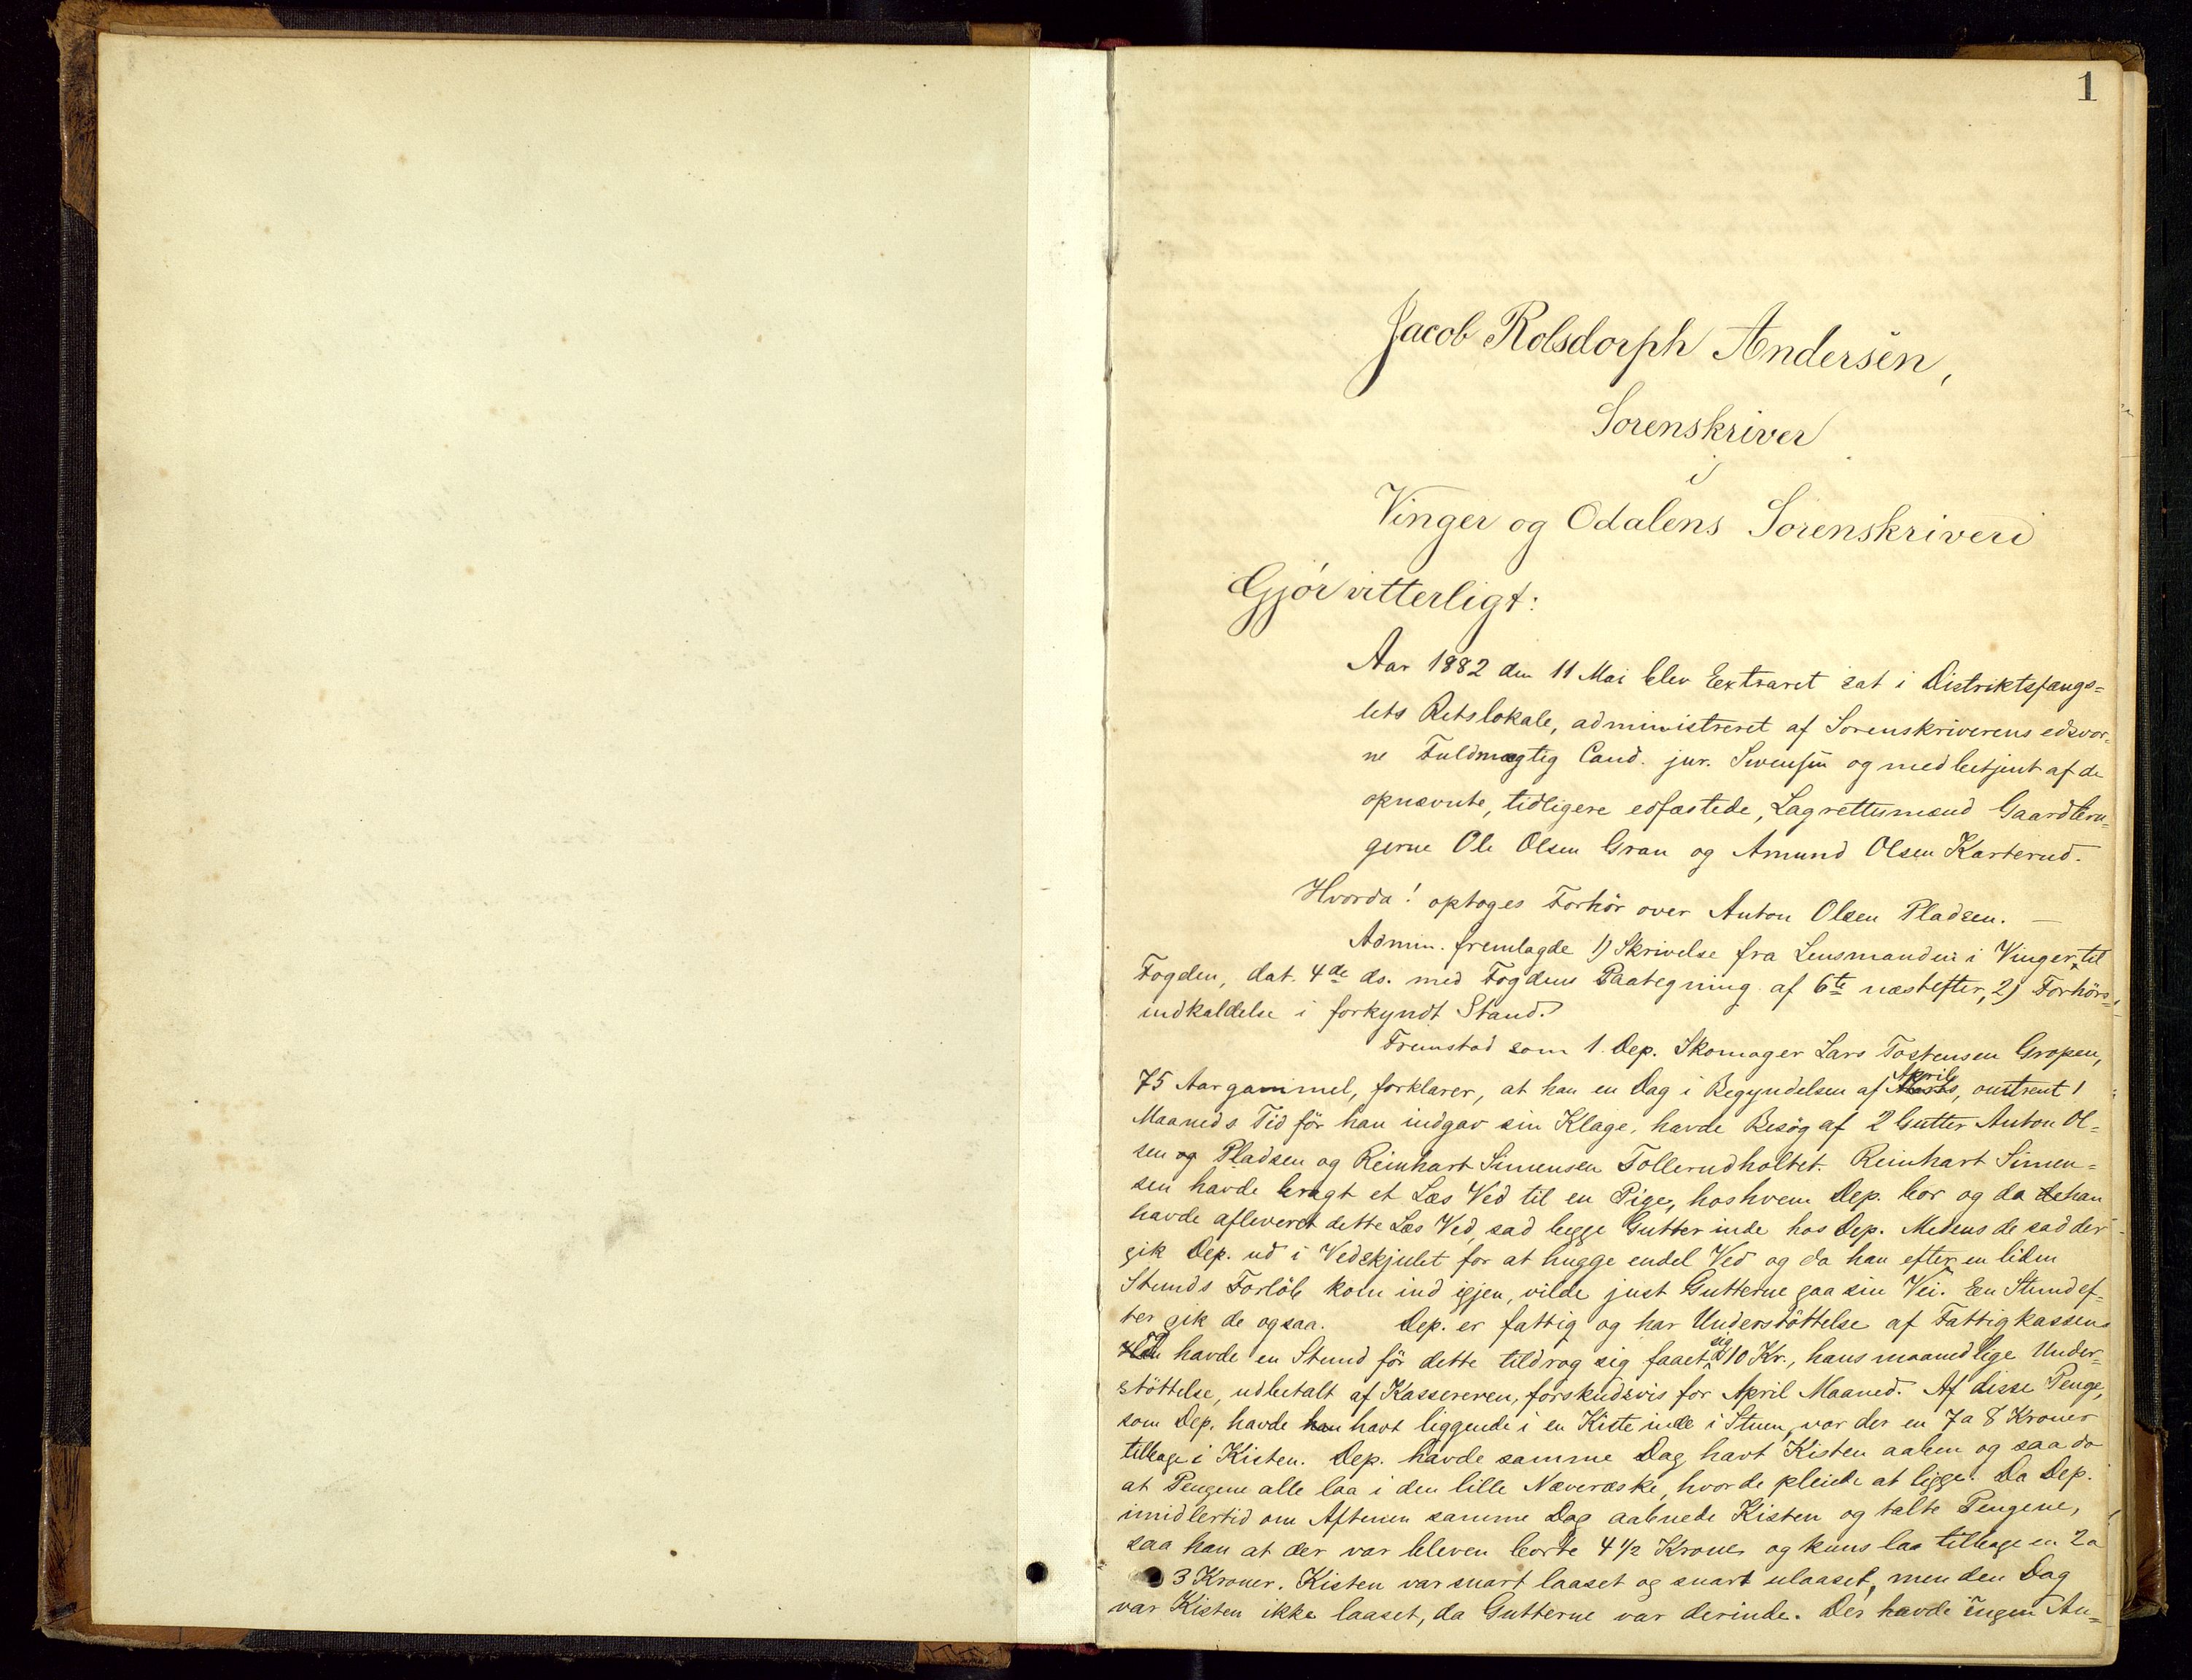 1
Jacob Rolsdorph Andersen,
Sorenskriver
i
Vinger og Odalens Sorenskriveri
Gjör vitterligt:
Aar 1882 den 11 Mai blev Extraret sat i Distriktsfængs=
lets Retslokale, administreret af Sorenskriverens edsvor=
ne Fuldmægtig Cand. jur. Swensen og med betjent af de
opnævnte, tidligere edfæstede, Lagrettesmænd Gaardbru=
gerne Ole Olsen Gran og Amund Olsen Karterud.
Hvorda! optoges Forhör over Anton Olsen Pladsen. —
Admin. fremlagde 1) Skrivelse fra Lensmanden i Vinger, til
Fogden, dat. 4de ds. med Fogdens Paategning af 6te næstefter, 2) Forhörs=
indkaldelse i forkyndt Stand.
Fremstod som 1. Dep. Skomager Lars Tostensen Gropen,
75 Aar gammel, forklarer, at han en Dag i Begyndelsen af Marts April, omtrent 1
Maaneds Tid för han indgav sin Klage, havde Besög af 2 Gutter Anton Ol=
sen og Pladsen og Reinhart Simensen Tollerudholtet. Reinhart Simen=
sen havde bragt et Læs Ved til en Pige, hos hvem Dep. bor og da de han
havde afleveret dette Læs Ved, sad begge Gutter inde hos Dep. Medens de sad der
gik Dep. ud i Vedskjulet for at hugge endel Ved og da han efter en liden
Stunds Forlöb kom ind igjen, vilde just Gutterne gaa sin Vei. En Stund ef=
ter gik de ogsaa. Dep. er fattig og har Understöttelse af Fattigkassen.
havde en Stund för dette tildrog sig faaet sig 10 Kr., hans maanedlige Under=
stöttelse, udbetalt af Kassereren, forskudsvis for April Maaned. Af disse Penge,
som Dep. havde han havt liggende i en Kiste inde i Stuen, var der en 7 a 8 Kroner
tilbage i Kisten. Dep. havde samme Dag havt Kisten aaben og saa da
at Pengene alle laa i den lille Næveræske, hvor de pleiede at ligge. Da Dep.
imidlertid om Aftenen samme Dag aabnede Kisten og talte Pengene,
saa han at der var bleven borte 4 1/2 Kroner og kuns laa tilbage en 2 a
3 Kroner. Kisten var snart laaset og snart ulaaset, men den Dag
var Kisten ikke laaset, da Gutterne var derinde. Der havde ingen An=